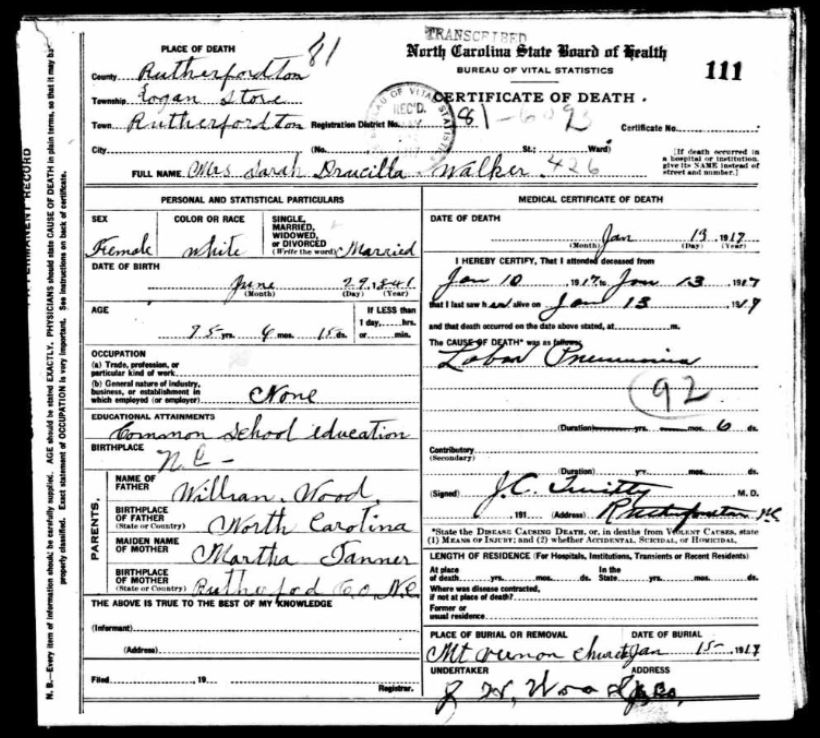 TRANSCRIBED
PLACE OF DEATH 81 North Carolina State Board of Health
BUREAU OF VITAL STATISTICS 111
County Rutherfordton
Township Logan Store CERTIFICATE OF DEATH.
Town Rutherfordton Registration District No. 81- Certificate No.
BUREAU OF VITAL STATISTICS
REC'D.
City (No. St.; Ward)
[If death occurred in
a hospital or institution,
give its NAME instead of
street and number.]
FULL NAME Mrs Sarah Drucilla Walker. 426
PERSONAL AND STATISTICAL PARTICULARS
SEX
Female
COLOR OR RACE
White
SINGLE,
MARRIED,
WIDOWED,
or DIVORCED
(Write the word) Married
DATE OF BIRTH
June 29, 1841
(Month) (Day) (Year)
AGE
75 yrs. 6 mos. 15 ds.
If LESS than
1 day,....hrs.
or....min.
OCCUPATION
(a) Trade, profession, or
particular kind of work
(b) General nature of industry,
business, or establishment in
which employed (or employer) None
EDUCATIONAL ATTAINMENTS
Common School education
BIRTHPLACE
N.C-
PARENTS.
NAME OF
FATHER
William Wood
BIRTHPLACE
OF FATHER
(State or Country) North Carolina
MAIDEN NAME
OF MOTHER Martha Tanner
BIRTHPLACE
OF MOTHER
(State or Country) Rutherfod Co. N.C.
THE ABOVE IS TRUE TO THE BEST OF MY KNOWLEDGE
(Informant)
(Address)
Filed , 19
Registrar.
MEDICAL CERTIFICATE OF DEATH
DATE OF DEATH
Jan 13 1917
(Month) (Day) (Year)
I HEREBY CERTIFY, That I attended deceased from
Jan 10, 1917, to Jan 13, 1917
that I last saw her alive on Jan 13, 1917
and that death occurred on the date above stated, at m.
The CAUSE OF DEATH* was as follows:
Lobar Pneumonia
92
(Duration) yrs. mos. 6 ds.
Contributory
(Secondary)
(Duration) yrs. mos. ds.
(Signed) J.C. Twitty M. D.
, 191 (Address) Rutherfordton NC
*State the DISEASE CAUSING DEATH, or, in deaths from VIOLENT CAUSES, state
(1) MEANS OF INJURY; and (2) whether ACCIDENTAL, SUICIDAL, or HOMICIDAL.
LENGTH OF RESIDENCE (For Hospitals, Institutions, Transients or Recent Residents)
At place
of death yrs. mos. ds.
In the
State yrs. mos. ds.
Where was disease contracted,
if not at place of death?
Former or
usual residence
PLACE OF BURIAL OR REMOVAL
Mt Vernon Church
DATE OF BURIAL
Jan 15-, 1917
UNDERTAKER
ADDRESS
PERMANENT RECORD
N. B.—Every item of information should be carefully supplied. AGE should be stated EXACTLY. PHYSICIANS should state CAUSE OF DEATH in plain terms, so that it may be
properly classified. Exact statement of OCCUPATION is very important. See instructions on back of certificate.